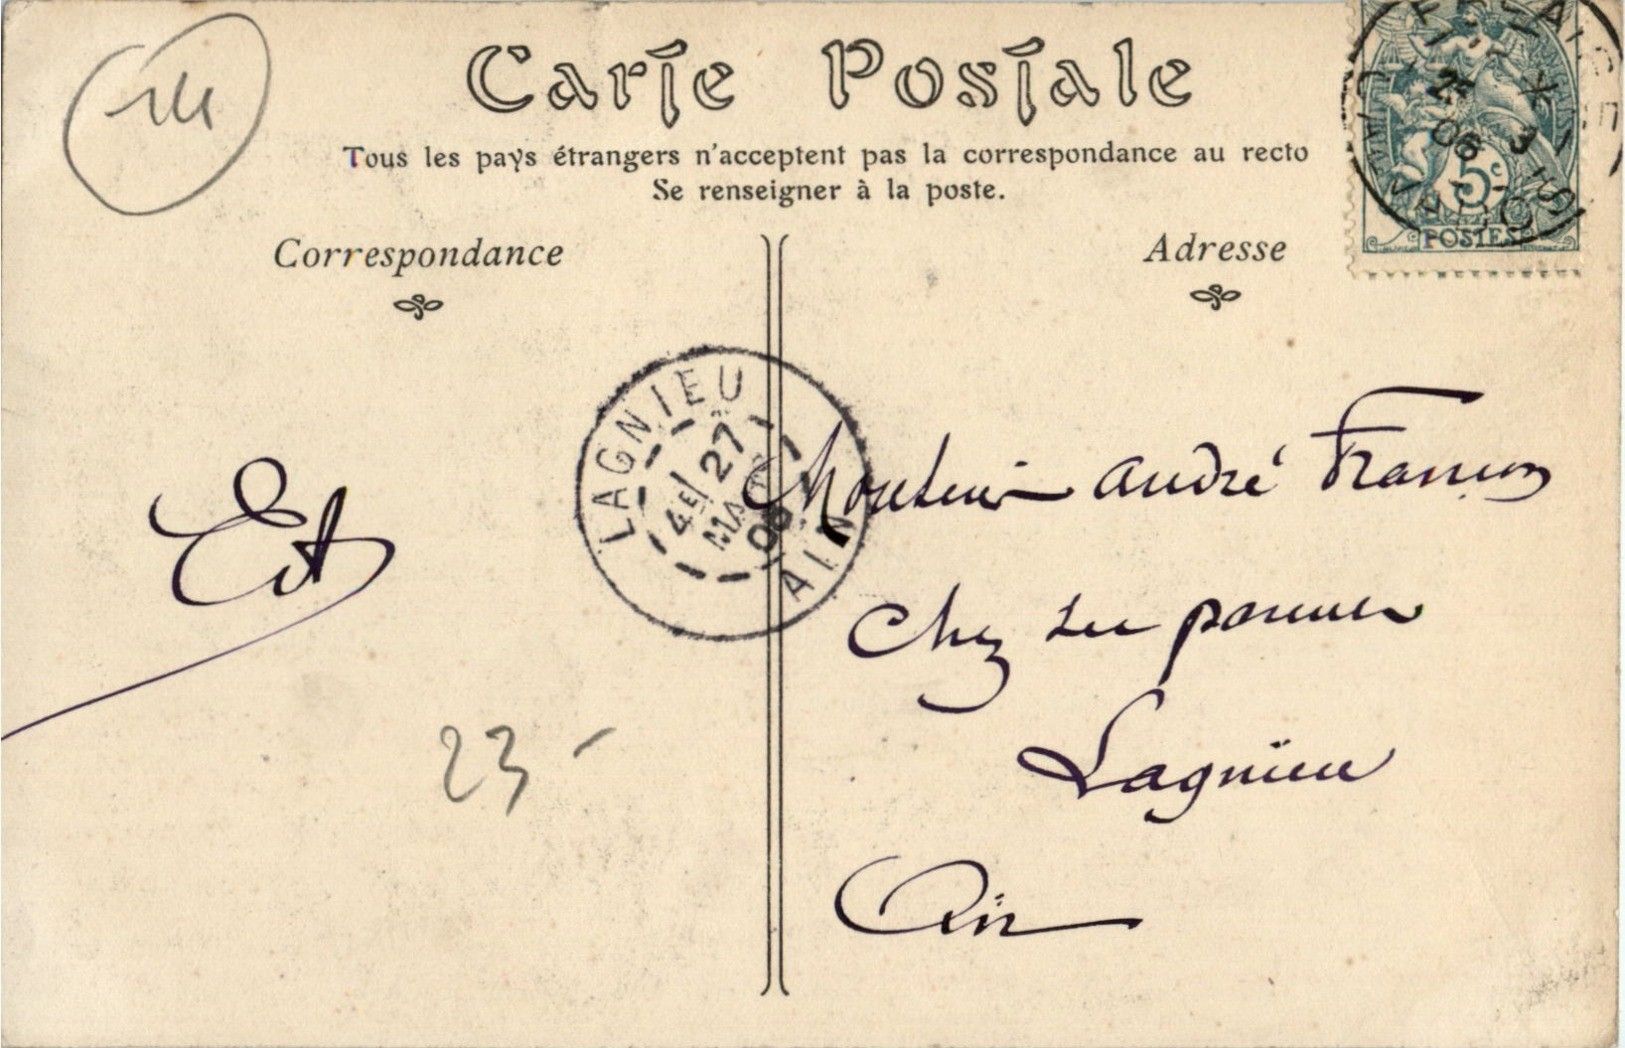 Carte Postale
Tous les pays étrangers n'acceptent pas la correspondance au recto
Se renseigner à la poste.
Correspondance
Adresse
5c
POSTES
25
3
06
LAGNIEU
4E
27
MAI
AIN
Monsieur André
Chez ses parents
Lagnieu
Ain
23-